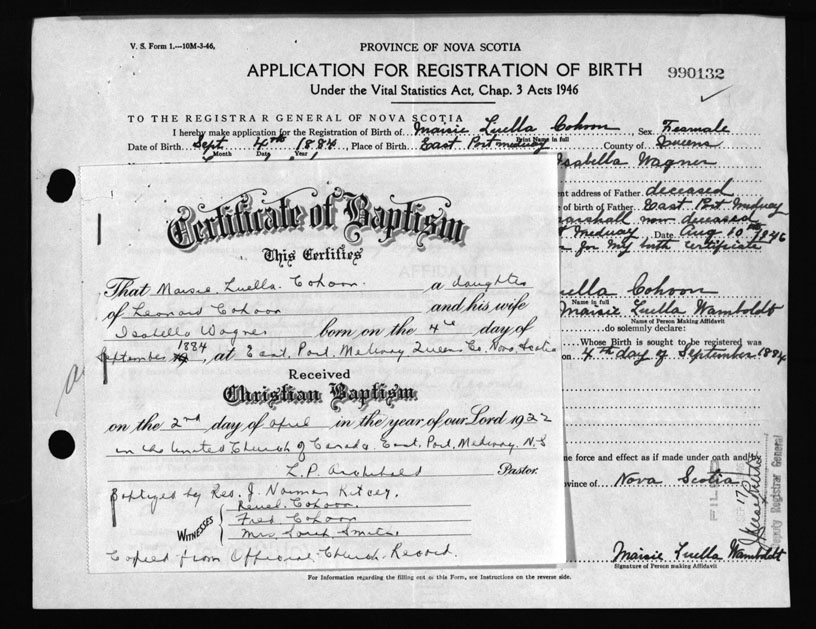 V. S. Form 1.—10M-3-46.
PROVINCE OF NOVA SCOTIA
APPLICATION FOR REGISTRATION OF BIRTH
990132
Under the Vital Statistics Act, Chap. 3 Acts 1946
TO THE REGISTRAR GENERAL OF NOVA SCOTIA
I hereby make application for the Registration of Birth of Maisie Luella Cohoon, Sex Feamale
Print Name in full
Date of Birth Sept 4th 1884, Place of Birth East Port medway County of Queens
Month Date Year
Isabella Wagner
address of Father deceased
of birth of Father East Port Medway
marshall now deceased
Medway Date Aug 10th 1946
for my birth certificate
Certificate of Baptism
This Certifies
That Maisie Luella Cohoon a daughter
of Leonard Cohoon and his wife
Isabella Wagner born on the 4th day of
September 1884, at East Port Medway Queens Co. Nova Scotia
Received
Christian Baptism
on the 2nd day of April in the year of our Lord 1922
in the United Church of Canada East Port Medway N.S
L.P. Archibald Pastor
Baptized by Rev. J. Norman
WITNESSES
Cohoon
Fred Cohoon
Mrs Smith
Copied from Official Church Record.
AFFIDAVIT
uella Cohoon
Name in full
Maisie Luella Wamboldt
Name of Person Making Affidavit
do solemnly declare:
Whose Birth is sought to be registered was
on 4th day of September 1884
force and effect as if made under oath and by
ince of Nova Scotia
FILED
Deputy Registrar General
Maisie Luella Wamboldt
Signature of Person making Affidavit
For Information regarding the filling out of this Form, see Instructions on the reverse side.